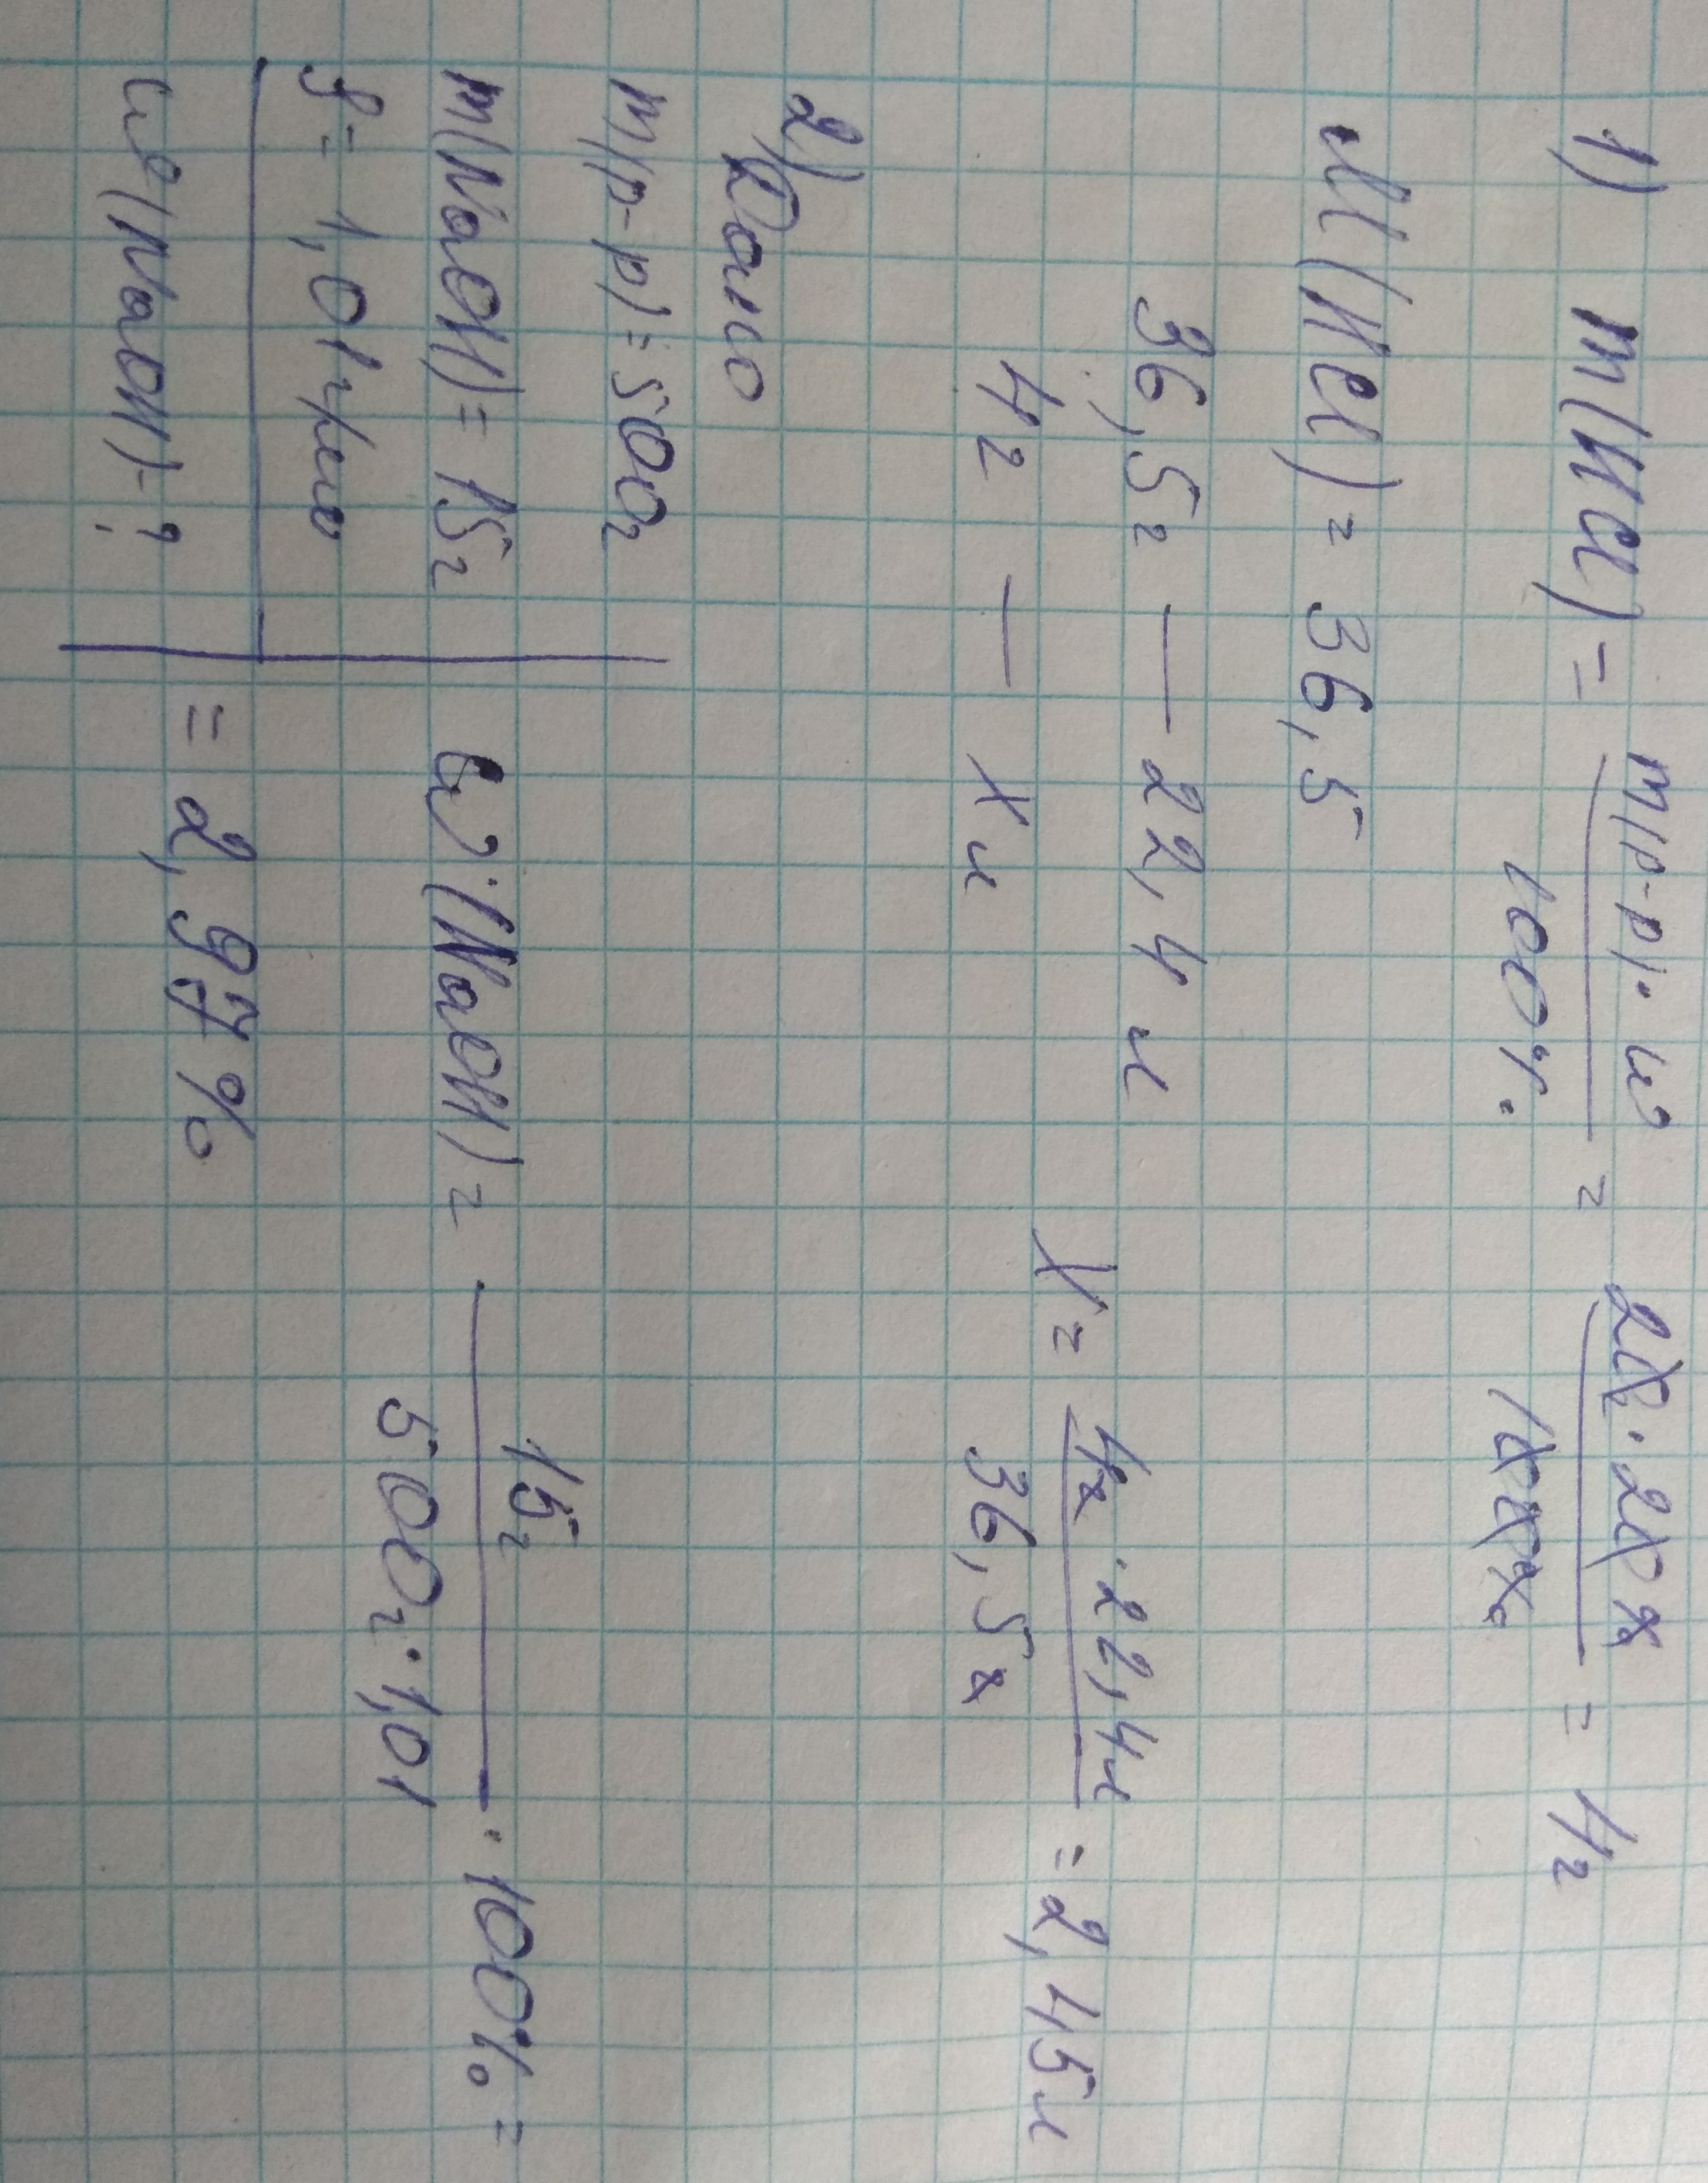 1) m(HCl) = m(р-р)·ω / 100% = 20г·20% / 100% = 4г
M(HCl) = 36,5
36,5г — 22,4л
4г — Xл
X = 4г·22,4л / 36,5г = 2,45л
2) Дано
m(р-р) = 500г
m(NaOH) = 15г
ρ = 1,01г/мл
ω(NaOH) - ?
ω(NaOH) = 15г / 500г·1,01 · 100% =
= 2,97%